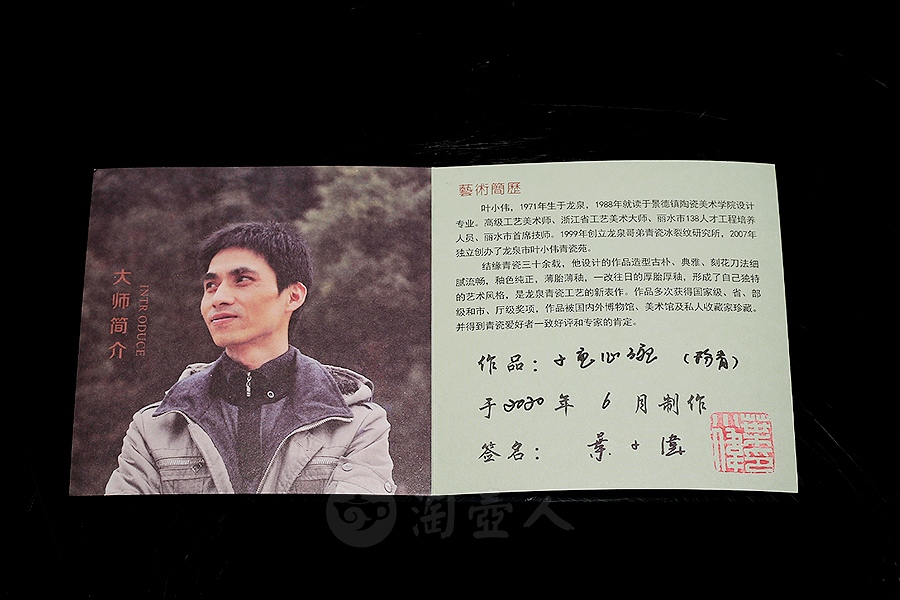 大师简介
INTRODUCE
藝術簡歷
叶小伟，1971年生于龙泉，1988年就读于景德镇陶瓷美术学院设计
专业。高级工艺美术师、浙江省工艺美术大师、丽水市138人才工程培养
人员、丽水市首席技师。1999年创立龙泉哥弟青瓷冰裂纹研究所，2007年
独立创办了龙泉市叶小伟青瓷苑。
结缘青瓷三十余载，他设计的作品造型古朴、典雅、刻花刀法细
腻流畅，釉色纯正，薄胎薄釉，一改往日的厚胎厚釉，形成了自己独特
的艺术风格，是龙泉青瓷工艺的新表作。作品多次获得国家级、省、部
级和市、厅级奖项，作品被国内外博物馆、美术馆及私人收藏家珍藏。
并得到青瓷爱好者一致好评和专家的肯定。
作品：
于2020年 6月制作
签名：葉小偉
淘壺人